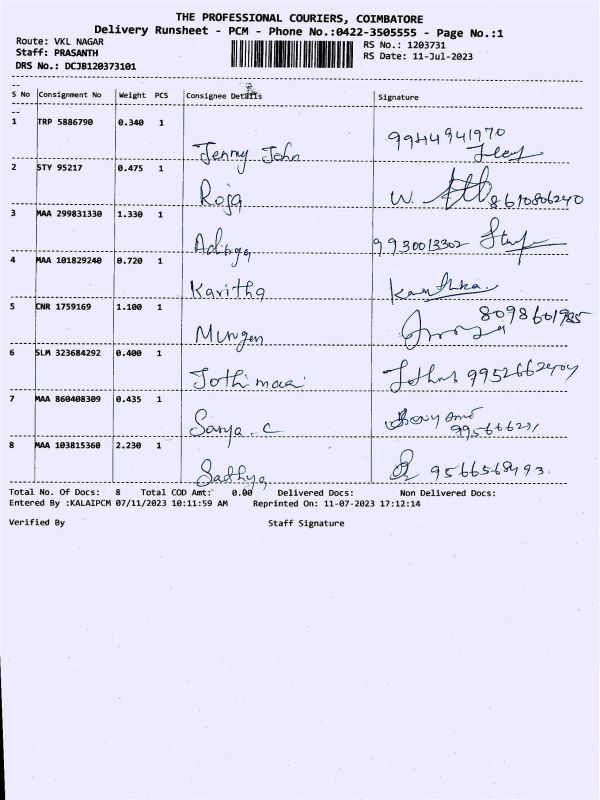 THE PROFESSIONAL COURIERS, COIMBATORE
Delivery Runsheet - PCM - Phone No.:0422-3505555 - Page No.:1
Route: VKL NAGAR
RS No.: 1203731
Staff: PRASANTH
RS Date: 11-Jul-2023
DRS No.: DCJB120373101
S No Consignment No Weight PCS Consignee Details Signature
1 TRP 5886790 0.340 1
Jenny John 9944941970
2 STY 95217 0.475 1
Roja W. 8610806240
3 MAA 299831330 1.330 1
9930013302
4 MAA 101829240 0.720 1
Karitha
5 CNR 1759169 1.100 1
8098601985
6 SLM 323684292 0.400 1
Jothimaai
7 MAA 860408309 0.435 1
Sanya. C
8 MAA 103815360 2.230 1
Sadhya 9566568493
Total No. Of Docs: 8 Total COD Amt: 0.00 Delivered Docs: Non Delivered Docs:
Entered By :KALAIPCM 07/11/2023 10:11:59 AM Reprinted On: 11-07-2023 17:12:14
Verified By Staff Signature